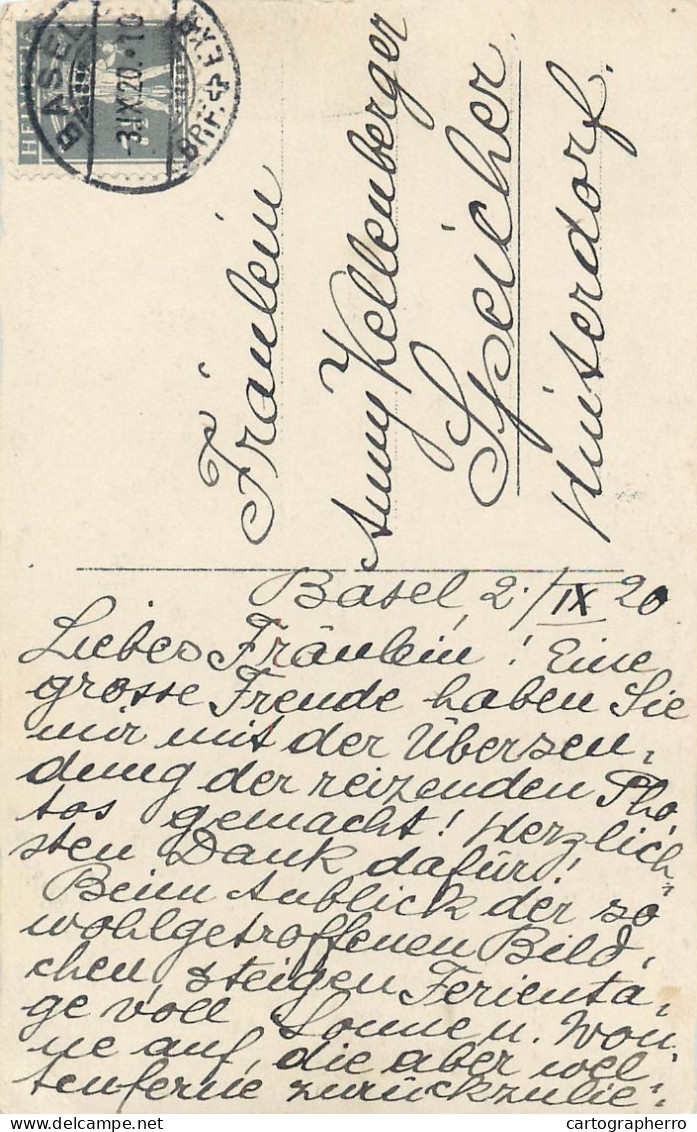 HELVETIA
BASEL
-3.IX.20.-10
BRF. EXP.
Fräulein
Anny Kellenberger
Speicher
Hinterdorf.
Basel, 2./IX 20
Liebes Fräulein! Eine
grosse Freude haben Sie
mir mit der Übersen-
dung der reizenden Pho-
tos gemacht! Herzlich-
sten Dank dafür!
Beim Anblick der so
wohlgetroffenen Bild-
chen, steigen Ferienta-
ge voll Sonne u. Won-
ne auf, die aber wel-
tenferne zurückzulie-
cartographerro